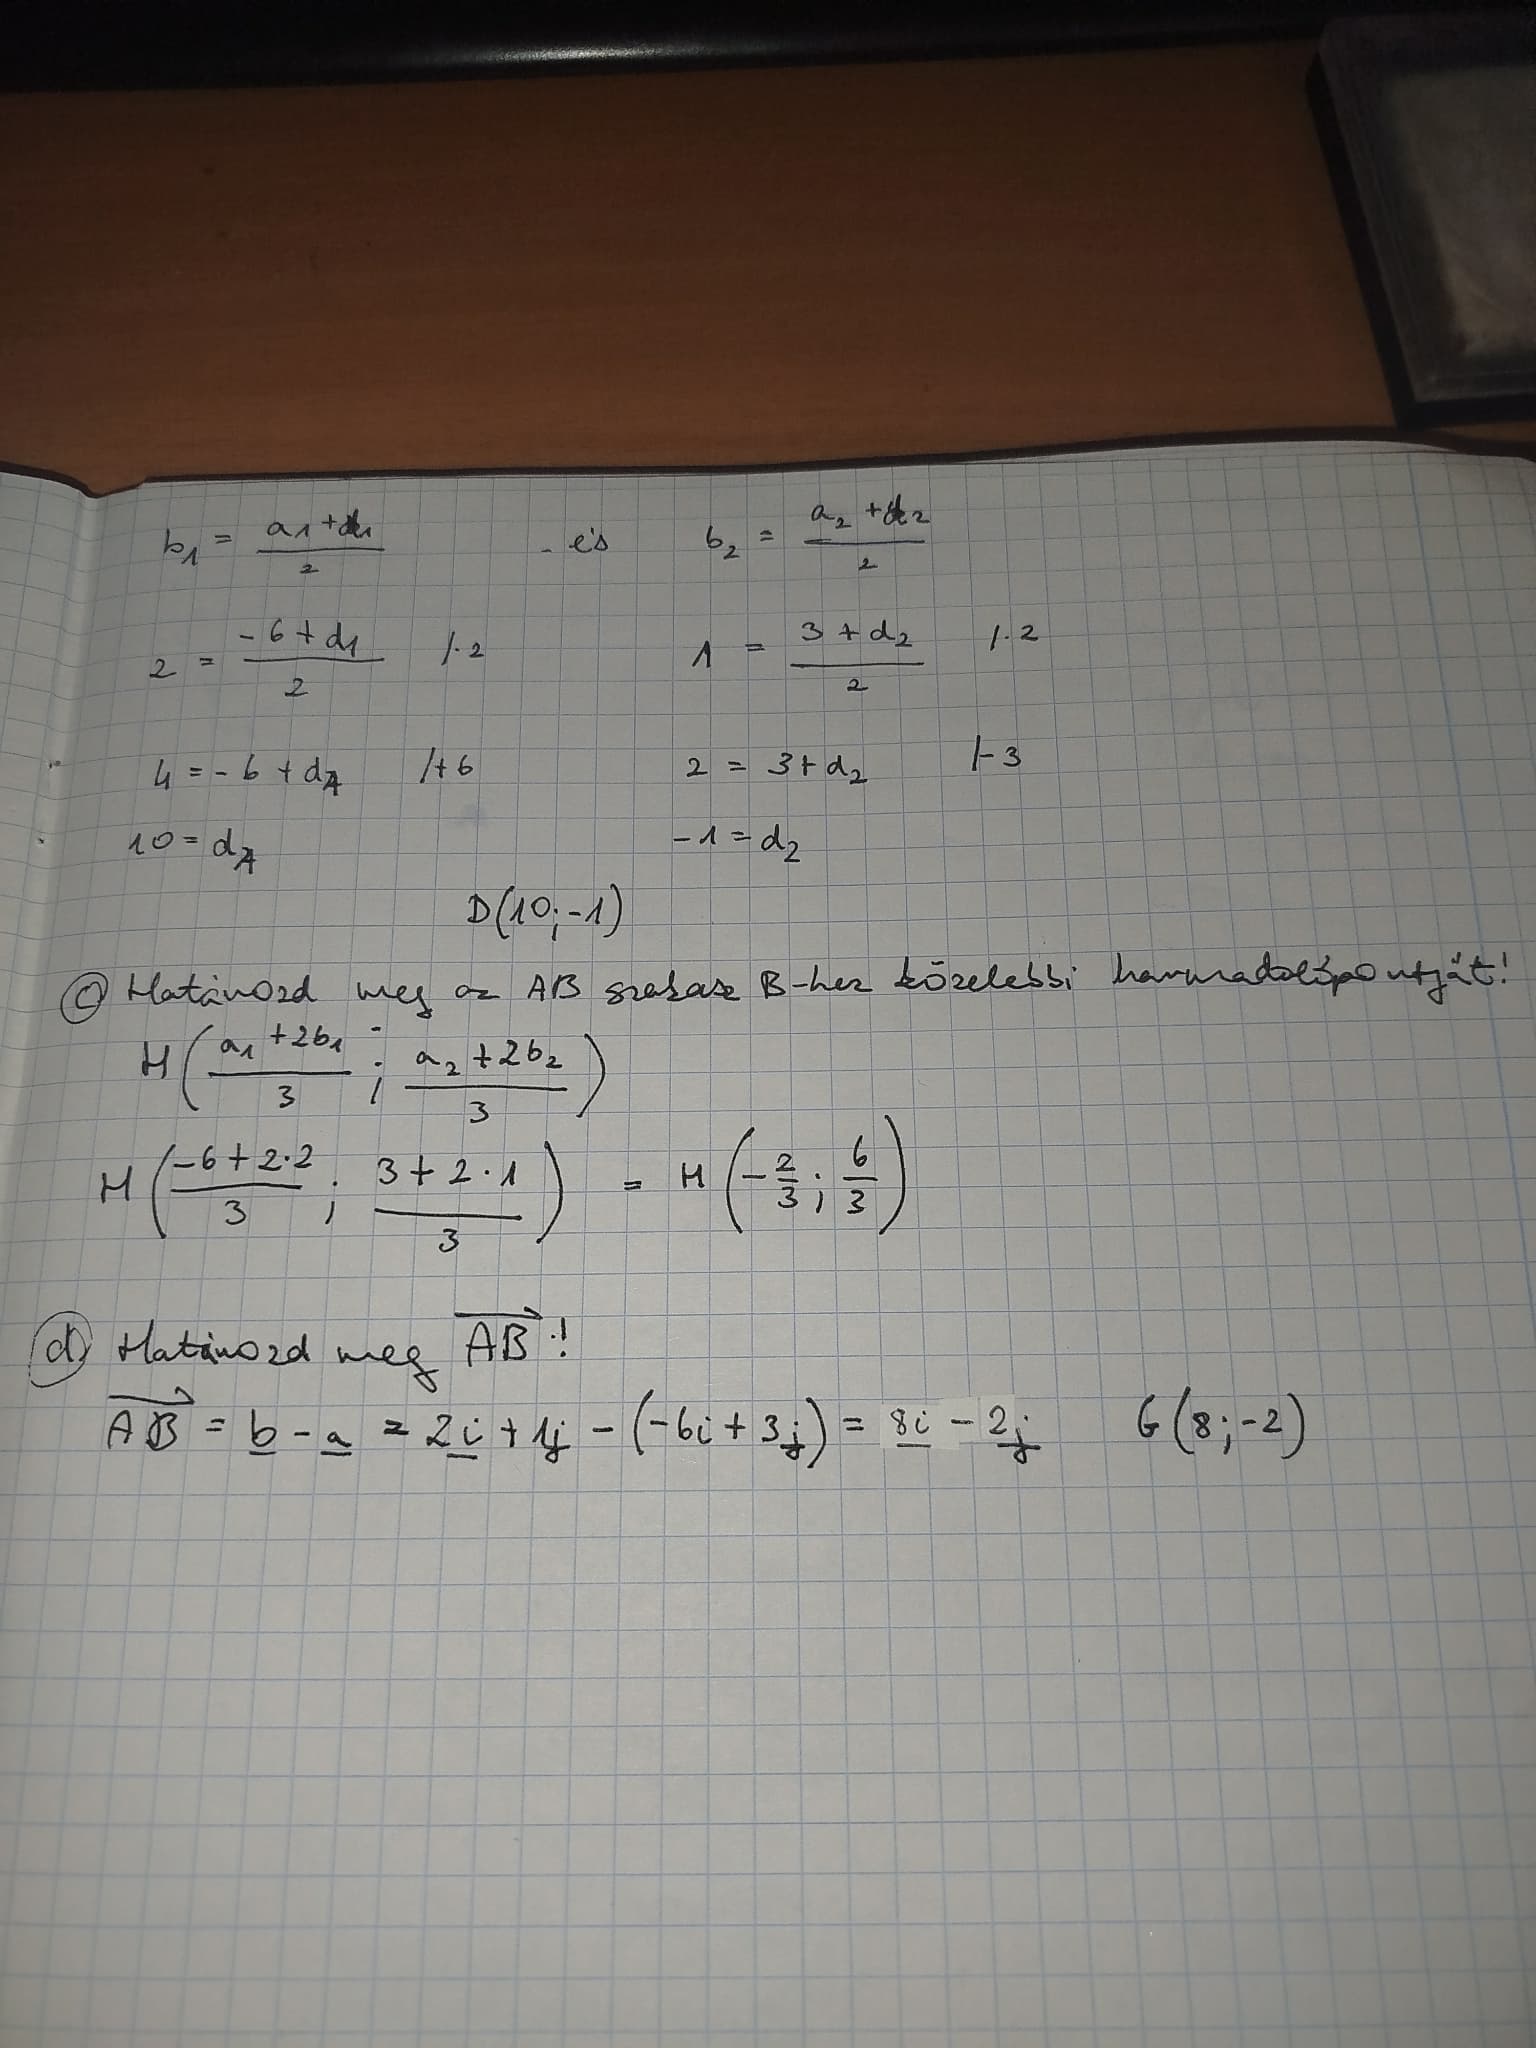 b₁ = (a₁+d₁)/2 - és b₂ = (a₂+d₂)/2
2 = (-6+d₁)/2 /·2 1 = (3+d₂)/2 /·2
4 = -6+d₁ /+6 2 = 3+d₂ /-3
10 = d₁ -1 = d₂
D(10;-1)
c) Határozd meg az AB szakasz B-hez közelebbi harmadolópontját!
H((a₁+2b₁)/3 ; (a₂+2b₂)/3)
H((-6+2·2)/3 ; (3+2·1)/3) = H(-2/3 ; 6/3)
d) Határozd meg A⃗B⃗!
A⃗B⃗ = b - a = 2i + 1j - (-6i + 3j) = 8i - 2j G(8;-2)